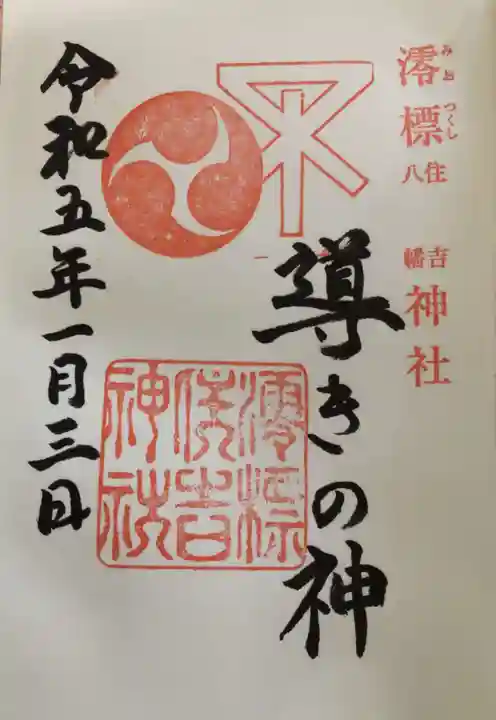 澪標住吉八幡神社
みおつくし
導きの神
澪標
住吉
神社
令和五年一月三日